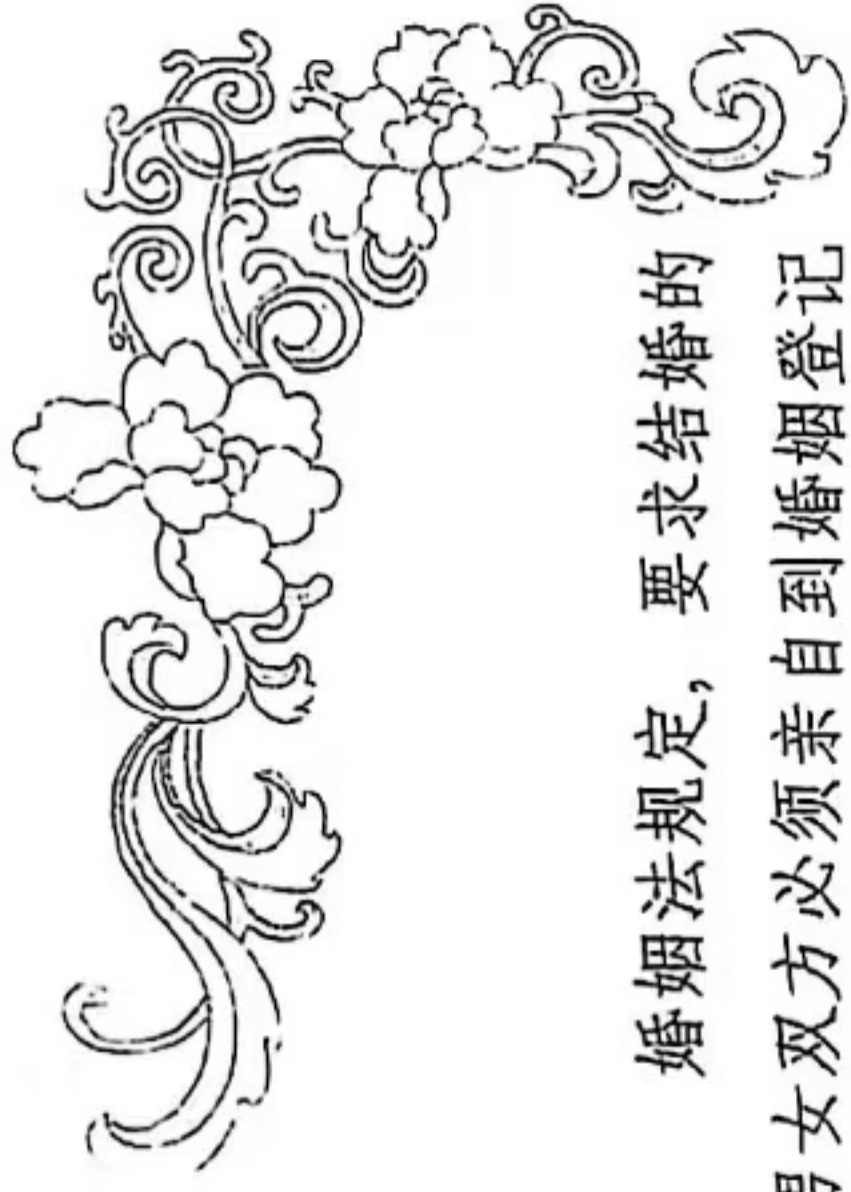 婚姻法规定，要求结婚的
男女双方必须亲自到婚姻登记